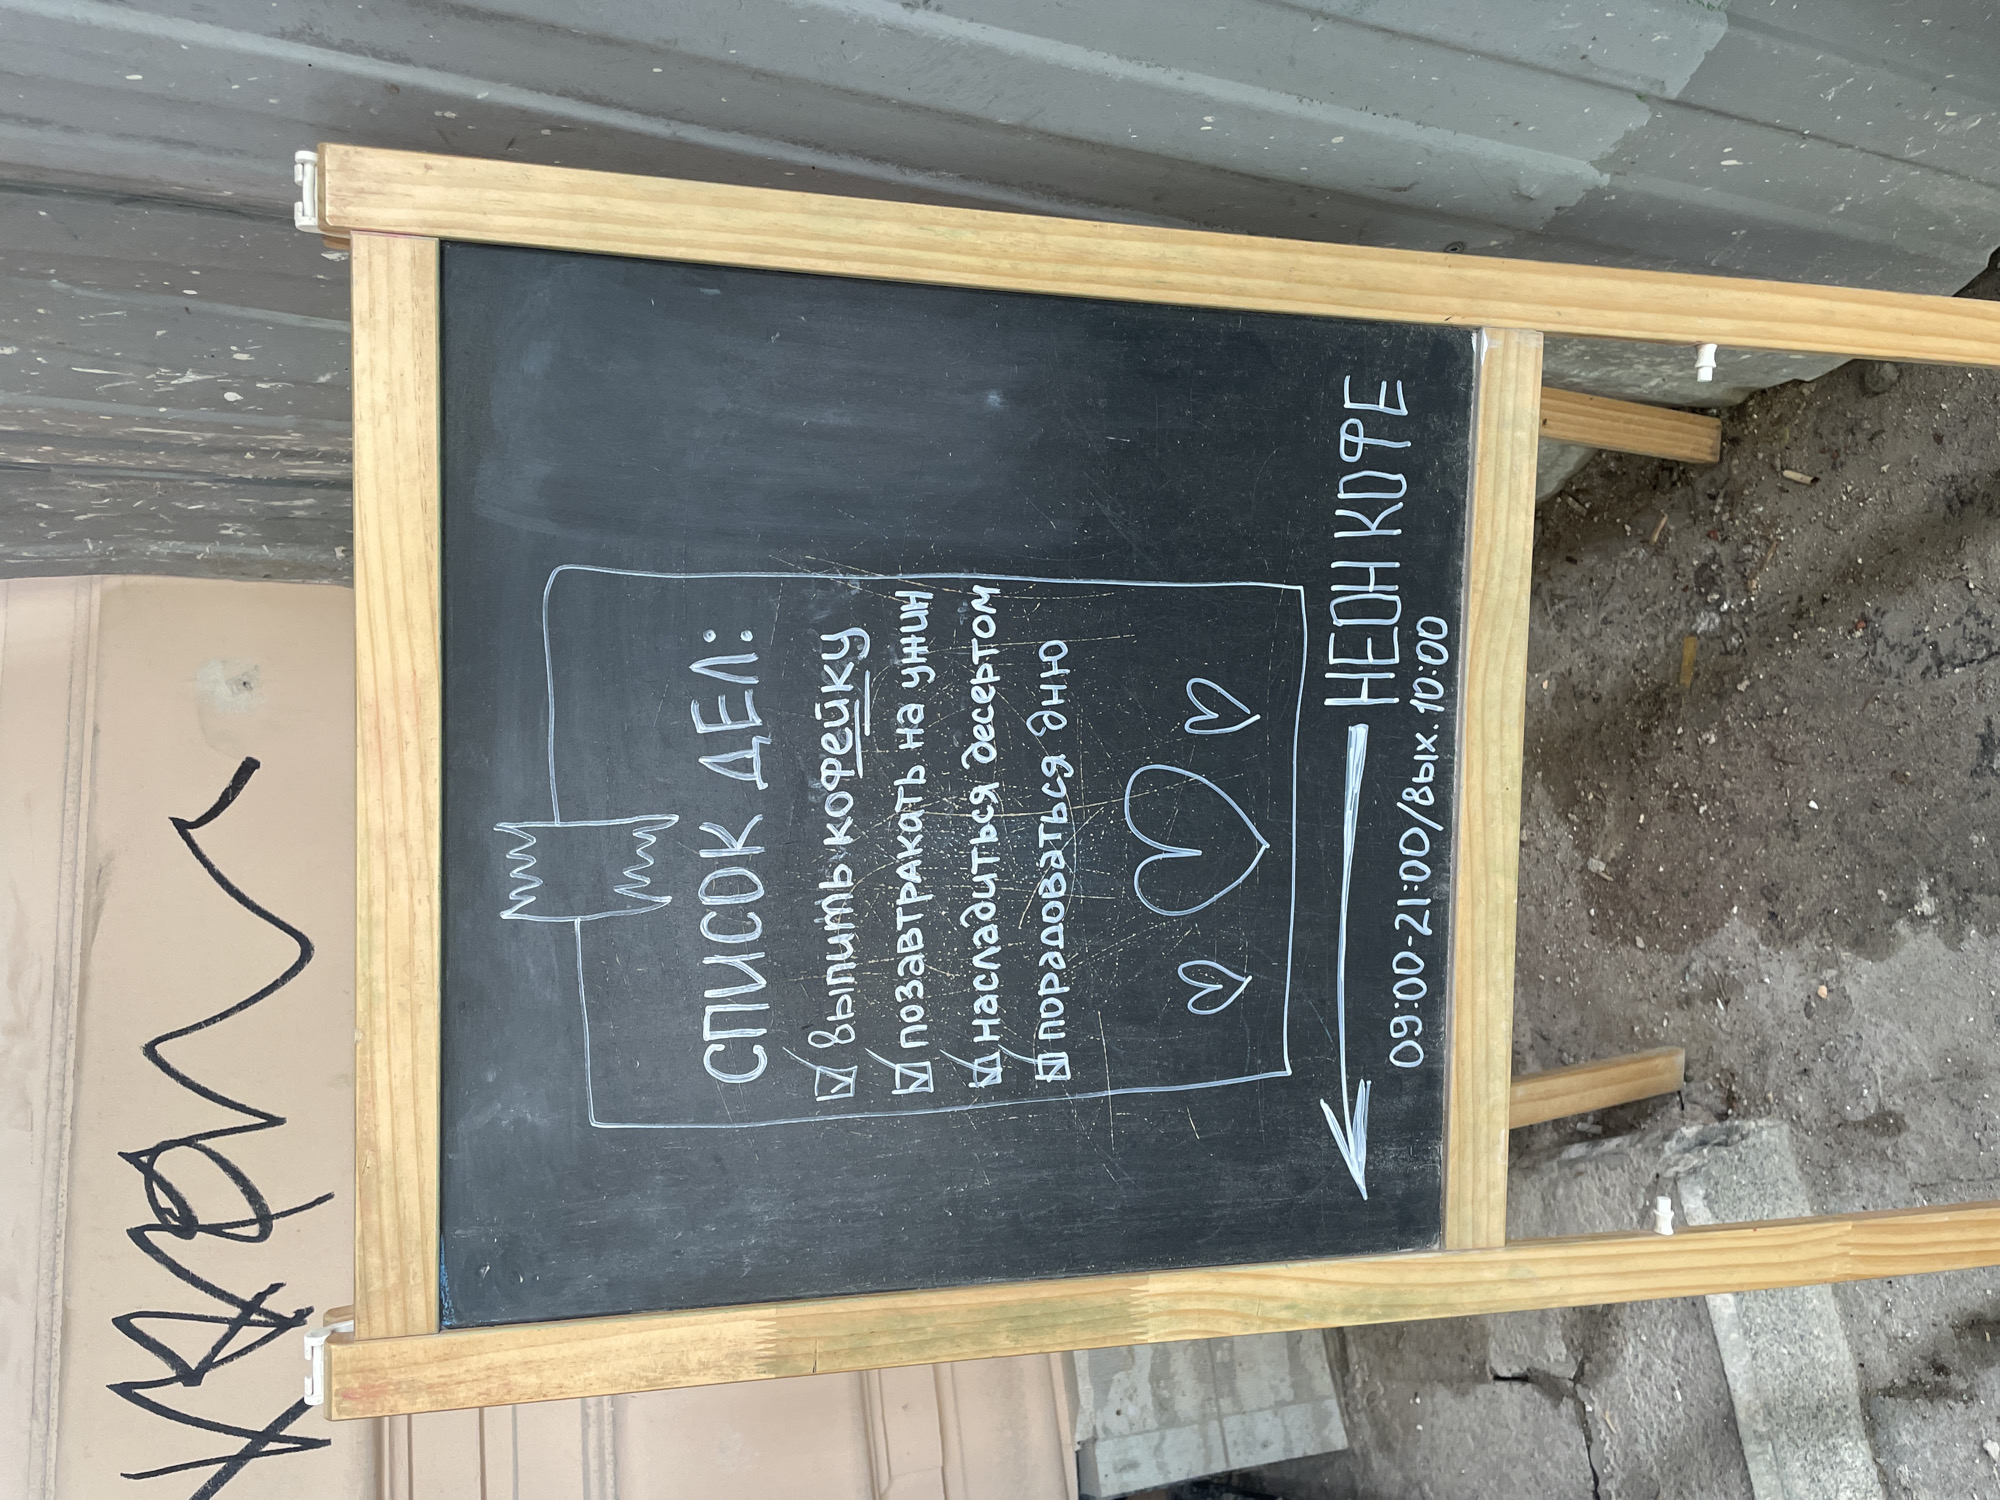 СПИСОК ДЕЛ:
выпить кофейку
позавтракать на ужин
насладиться десертом
порадоваться дню
НЕОН КОФЕ
09:00-21:00/вых. 10:00